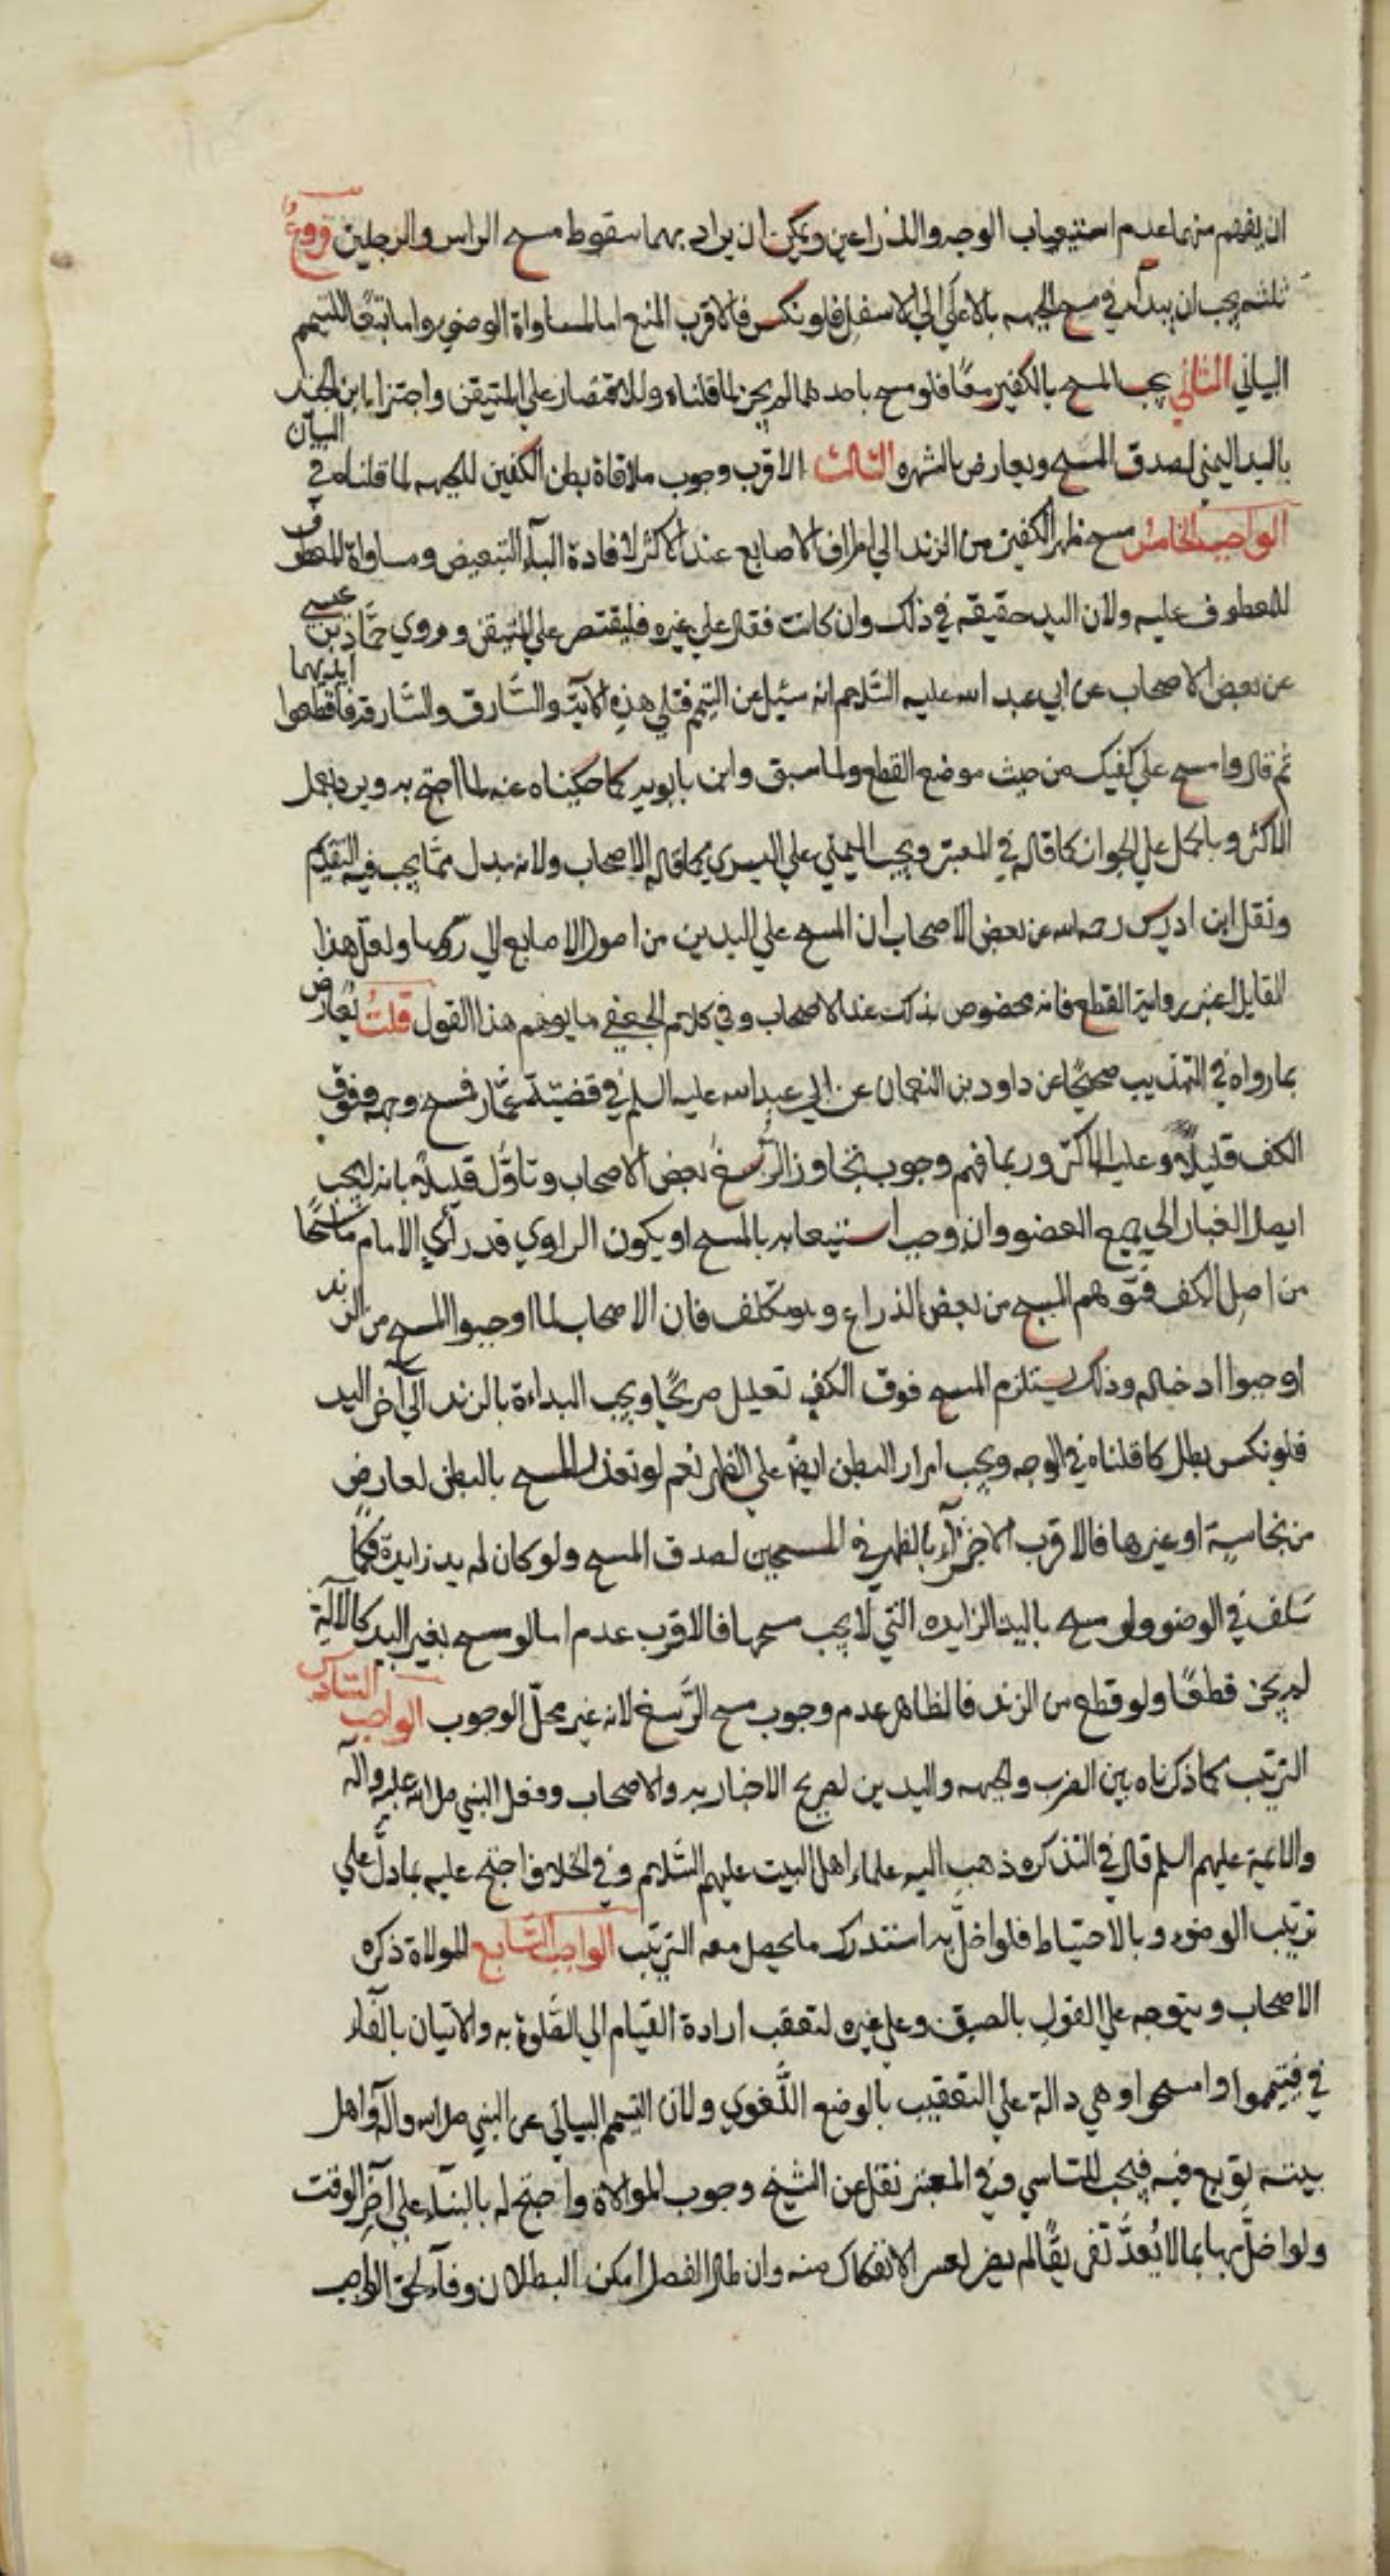 ان يفهم منهما عدم استيعاب الوجه والذراعين ويمكن ان يراد بهما سقوط مسح الراس والرجلين فروع
ثلثه يجب ان يبدأ في مسح الجبهه بالاعلي الي الاسفل فلو نكس فالاقرب المنع اما لمساواة الوضوء واما تبعًا للتيمم
البياني الثاني يجب المسح بالكفين معًا فلو مسح باحدهما لم يجز لما قلناه وللاقتصار علي المتيقن واجتزا ابن الجنيد
باليد اليمني لصدق المسح ويعارض بالشهره الثالث الاقرب وجوب ملاقاة بطن الكفين للجبهه لما قلناه في البيان
الواجب الخامس مسح ظهر الكفين من الزند الي اطراف الاصابع عند الاكثر لافادة البآء التبعيض ومساواة المعطوف
للمعطوف عليه ولان اليد حقيقه في ذلك وان كانت فقال علي غيره فليقتصر علي المتيقن وروي حمّاد بن عيسي
عن بعض الاصحاب عن ابي عبد الله عليه السّلام انه سئيل عن التيمم فتلي هذه الآية والسّارق والسّارقه فاقطعوا ايديهما
ثم قال وامسح علي كفيك من حيث موضع القطع ولما سبق وابن بابويه كما حكيناه عنه لما احتج به ويرد بعمل
الاكثر وبالحمل علي الجواز كما قاله في المعتبر ويجب اليمني علي اليسري كما قاله الاصحاب ولانه بدل ممّا يجب فيه التقديم
ونقل ابن ادريس رحمه الله عن بعض الاصحاب ان المسح علي اليدين من اصول الاصابع الي رؤسها ولعل هذا
القايل اعتبر رواية القطع فانه مخصوص بذلك عند الاصحاب وفي كلام الجعفي ما يوهم هذا القول قلت يعارض
بما رواه في التهذيب صحيحًا عن داود بن النعمان عن ابي عبد الله عليه السلم في قضيّة عمّار فمسح وجهه وفوق
الكف قليلًا وعليه الاكثر وربما فهم وجوب تجاوز الرُّسغ بعض الاصحاب وتاوّل قليلًا بانه لا يجب
ايصال الغبار الي جميع العضو وان وجب استيعابه بالمسح او يكون الراوي قد رأي الامام ماسحًا
من اصل الكف فتوهم المسح من بعض الذراع وهو تكلف فان الاصحاب لما اوجبوا المسح من الزند
اوجبوا ادخاله وذلك يستلزم المسح فوق الكف تعليل صريحًا ويجب البداءة بالزند الي آخر اليد
فلو نكس بطل كما قلناه في الوجه ويجب امرار البطن ايضًا علي الظهر نعم لو تعذر المسح بالبطن لعارض
من نجاسة او غيرها فالاقرب الاجزآء بالظهر في المسحين لصدق المسح ولو كان له يد زايدة فكما
سلف في الوضو ولو مسح باليد الزايده التي لا يجب مسحها فالاقرب عدم اما لو مسح بغير اليد كالآلة
لم يجز قطعًا ولو قطع من الزند فالظاهر عدم وجوب مسح الرّسغ لانه غير محلّ الوجوب الواجب السّادس
الترتيب كما ذكرناه بين الضرب والجبهه واليدين لصريح الاخبار به والاصحاب وفعل النبي صلي الله عليه وآله
والائمة عليهم السلم قال في التذكره ذهب اليه علماء اهل البيت عليهم السّلام وفي الخلاف احتج عليه بما دلّ علي
ترتيب الوضوء وبالاحتياط فلو اخلّ به استدرك ما يحصل معه الترتيب الواجب السّابع الموالاة ذكره
الاصحاب ويتوجه علي القول بالضيق وعلي غيره لتعقب ارادة القيام الي الصّلوة به والاتيان بالفاء
في فتيمموا وامسحوا وهي دالة علي التعقيب بالوضع اللّغوي ولان التيمم البياني عن النبي صلي الله وآله واهل
بيته توبع فيه فيجب التاسي وفي المعتبر نقل عن الشيخ وجوب الموالاة واحتج له بالبناء علي آخر الوقت
ولو اخلّ بها بما لا يُعدّ تفريقًا لم يضر لعسر الانفكاك منه وان طال الفصل امكن البطلان وفآء لحق الواجب